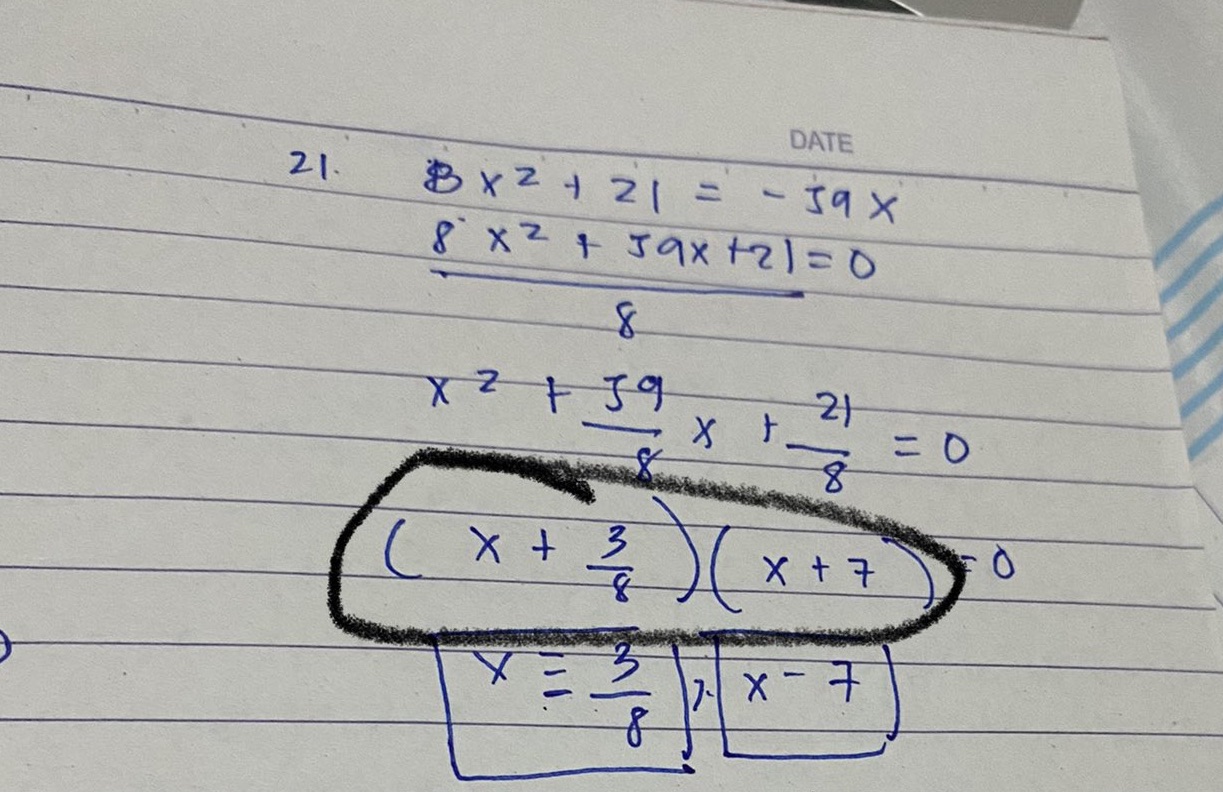 DATE
21. 8x² + 21 = - 59x
8x² + 59x + 21 = 0
8
x² + 59/8 x + 21/8 = 0
(x + 3/8)(x + 7) = 0
x = 3/8, x - 7